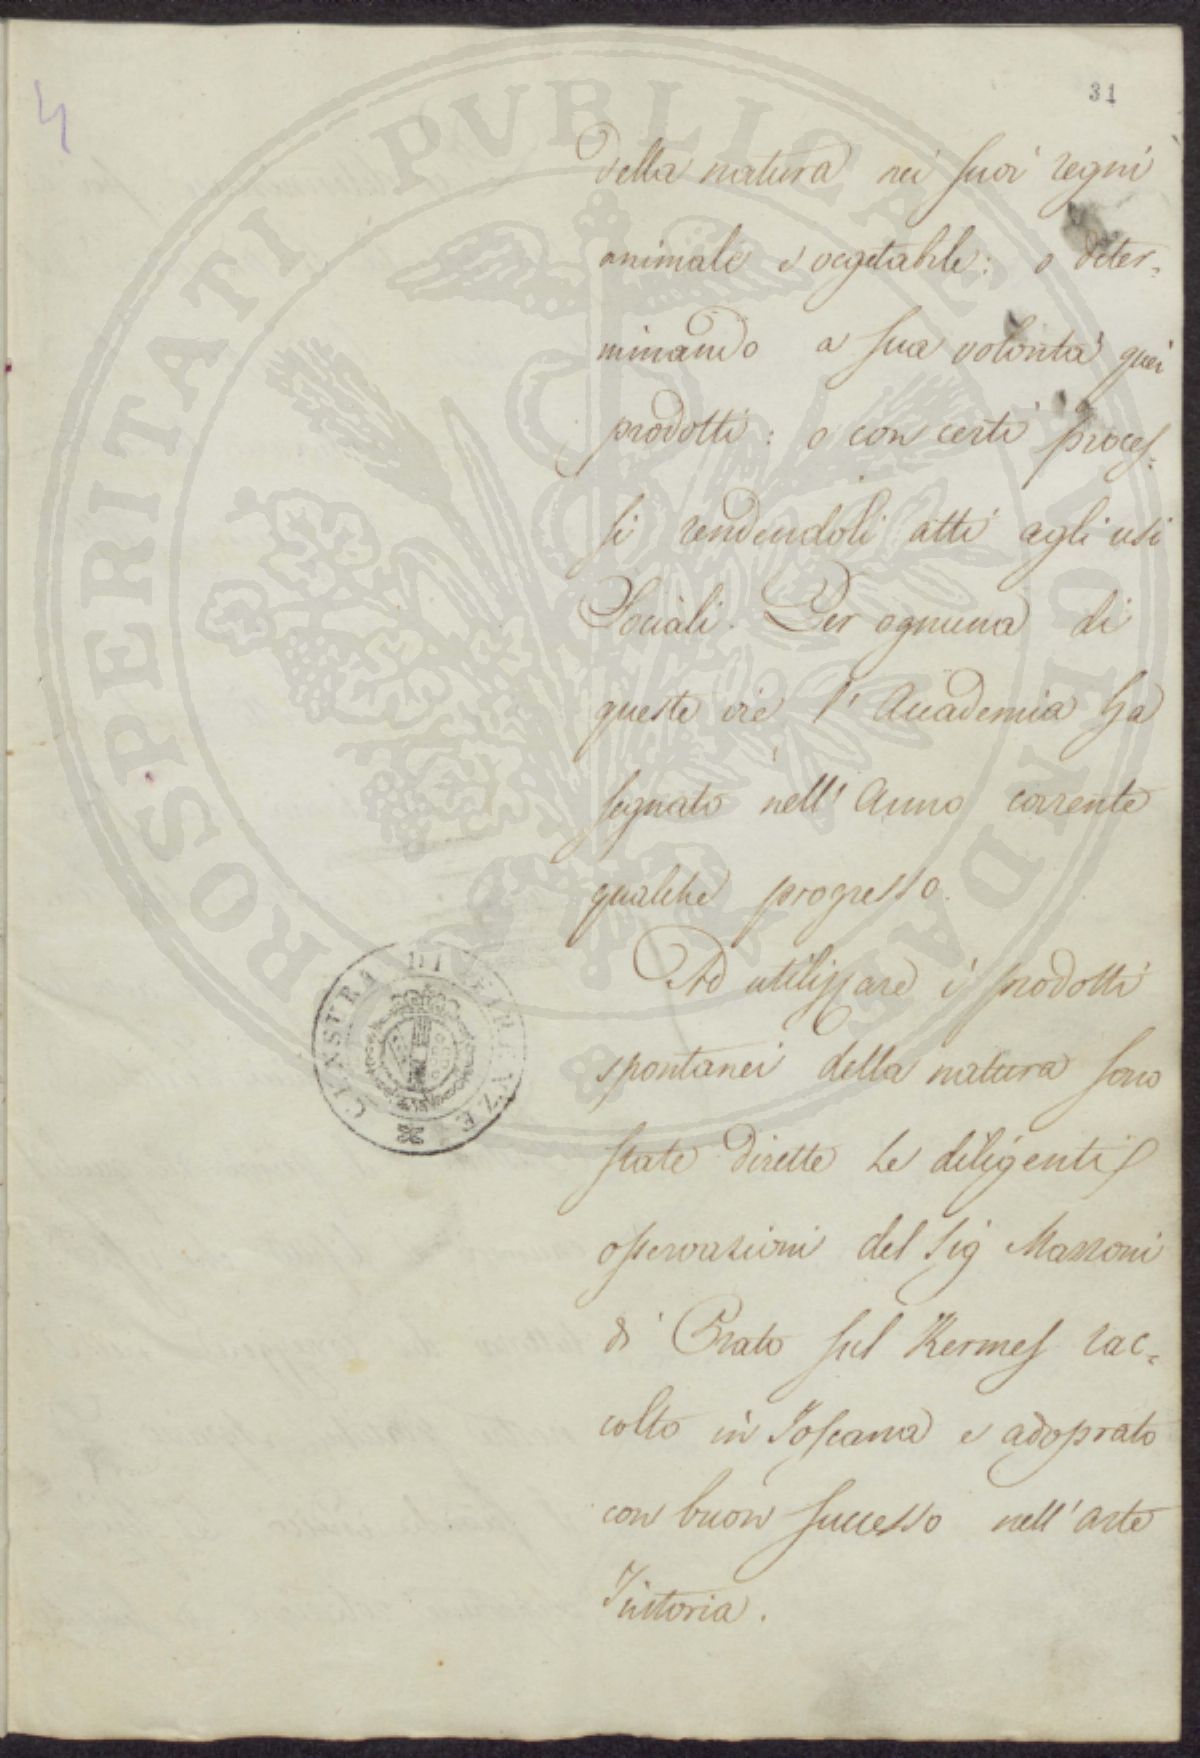 4
31
della natura nei suoi regni
animale e vegetabile: o deter-
minando a sua volontà quei
prodotti: o con certi proces-
si rendendoli atti agli usi
Sociali. Per ognuna di
queste vie l'Accademia ha
segnato nell'Anno corrente
qualche progresso.
Ad utilizzare i prodotti
spontanei della natura sono
state dirette le diligenti
osservazioni del Sig Mazzoni
di Prato sul Kermes rac-
colto in Toscana e adoprato
con buon successo nell'arte
Tintoria.
CENSURA DI FIRENZE
PROSPERITATI PVBLICAE AVGENDAE